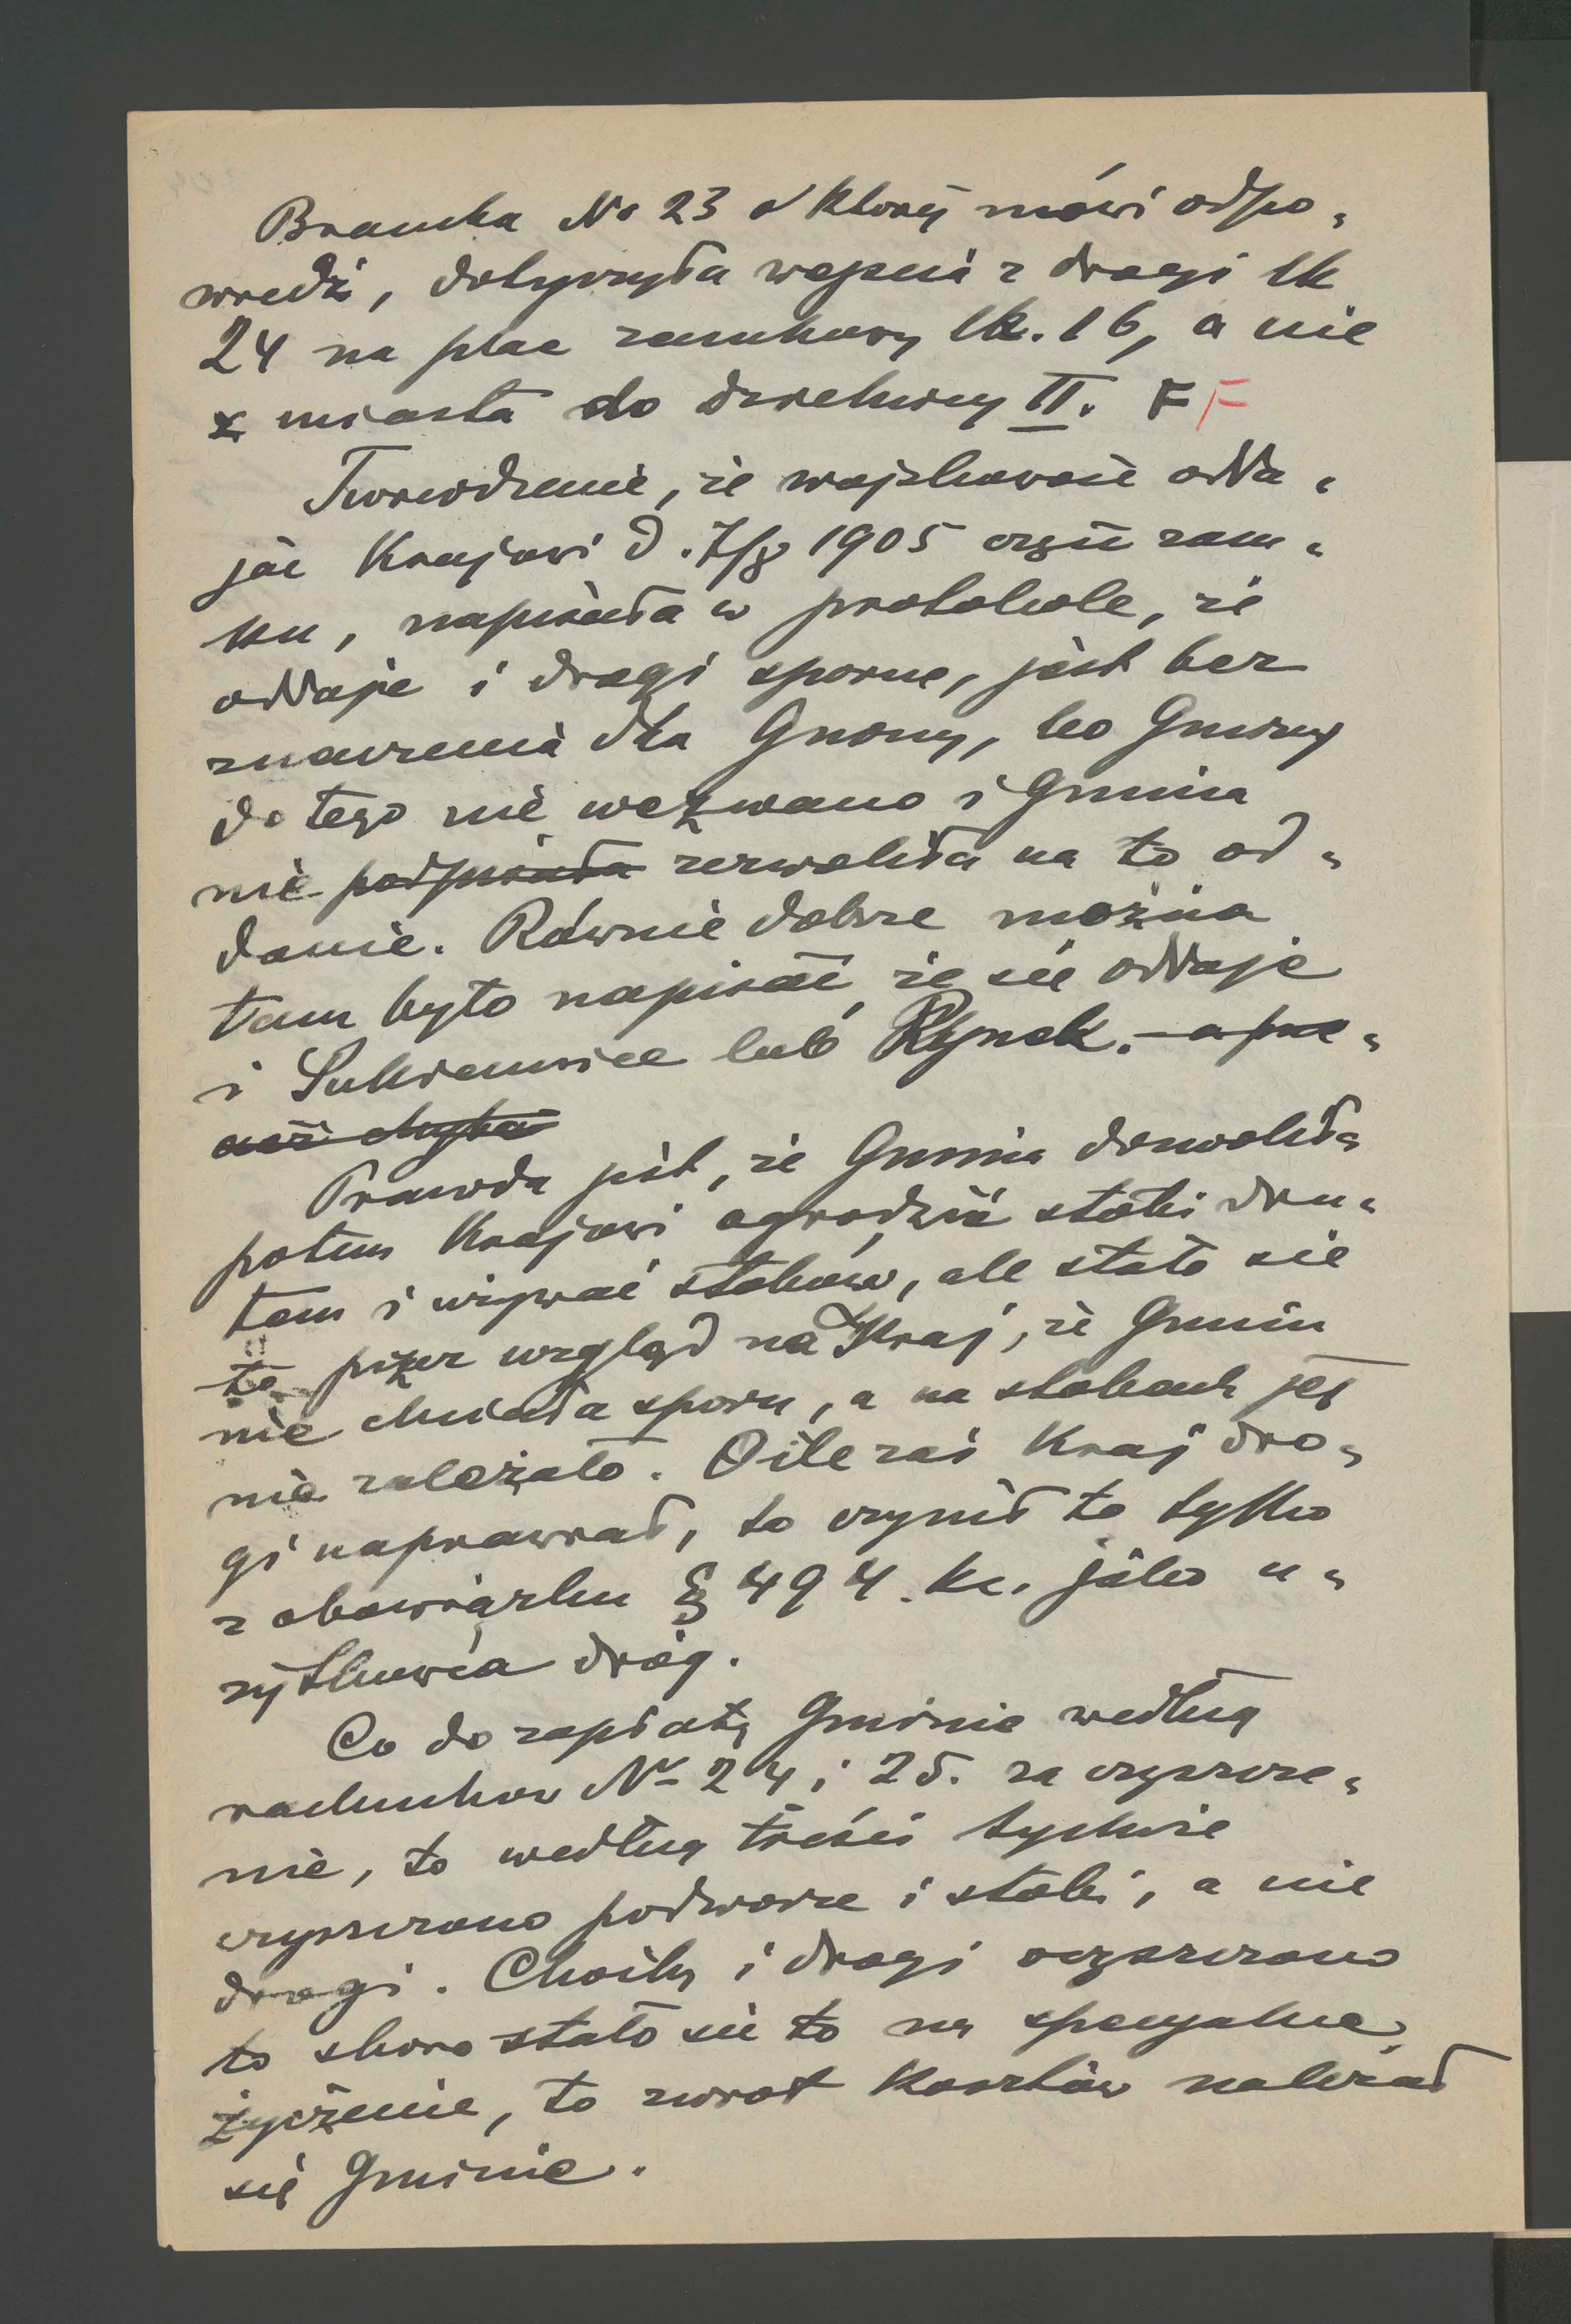 Bramka No 23 o której mówi odpo„
wiedź, dotyczyła wejścia z drogi lk
24 na plac zamkowy lk. 16, a nie
z miasta do dzielnicy II. F F
Twierdzenie, że wojskowość odda„
jąc Krajowi d. 7/8 1905 część zam„
ku, napisała w protokole, że
oddaje i drogi sporne, jest bez
znaczenia dla Gminy, bo Gminy
do tego nie wezwano i Gmina
nie podpisała zezwoliła na to od„
danie. Równie dobrze można
tam było napisać, że się oddaje
i Sukiennice lub Rynek. – a prze„
cież chyba
Prawda jest, że Gmina dozwoliła
potem Krajowi ogrodzić stoki dru„
tem i używać stoków, ale stało się
to przez wzgląd na Kraj, że Gmina
nie chciała sporu, a na stokach jej
nie zależało. O ile zaś Kraj dro„
gi naprawiał, to czynił to tylko
z obowiązku § 494. kc. jako u„
żytkowca dróg.
Co do zapłaty Gminie według
rachunków No 24 i 25. za czyszcze„
nie, to według treści tychże
czyszczono podworze i stoki, a nie
drogi. Choćby i drogi oczyszczono
to skoro stało się to na specyalne
życzenie, to zwrot kosztów należał
się Gminie.